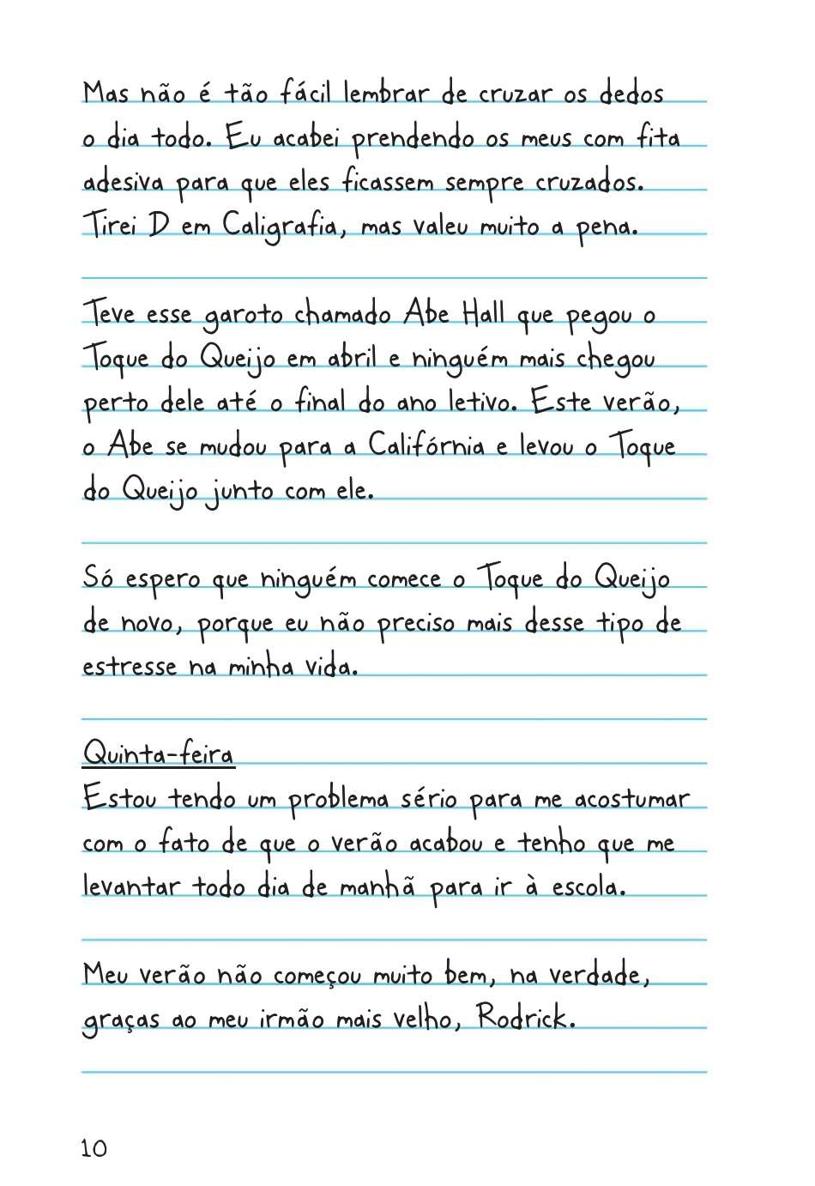 Mas não é tão fácil lembrar de cruzar os dedos
o dia todo. Eu acabei prendendo os meus com fita
adesiva para que eles ficassem sempre cruzados.
Tirei D em Caligrafia, mas valeu muito a pena.
Teve esse garoto chamado Abe Hall que pegou o
Toque do Queijo em abril e ninguém mais chegou
perto dele até o final do ano letivo. Este verão,
o Abe se mudou para a Califórnia e levou o Toque
do Queijo junto com ele.
Só espero que ninguém comece o Toque do Queijo
de novo, porque eu não preciso mais desse tipo de
estresse na minha vida.
Quinta-feira
Estou tendo um problema sério para me acostumar
com o fato de que o verão acabou e tenho que me
levantar todo dia de manhã para ir à escola.
Meu verão não começou muito bem, na verdade,
graças ao meu irmão mais velho, Rodrick.
10